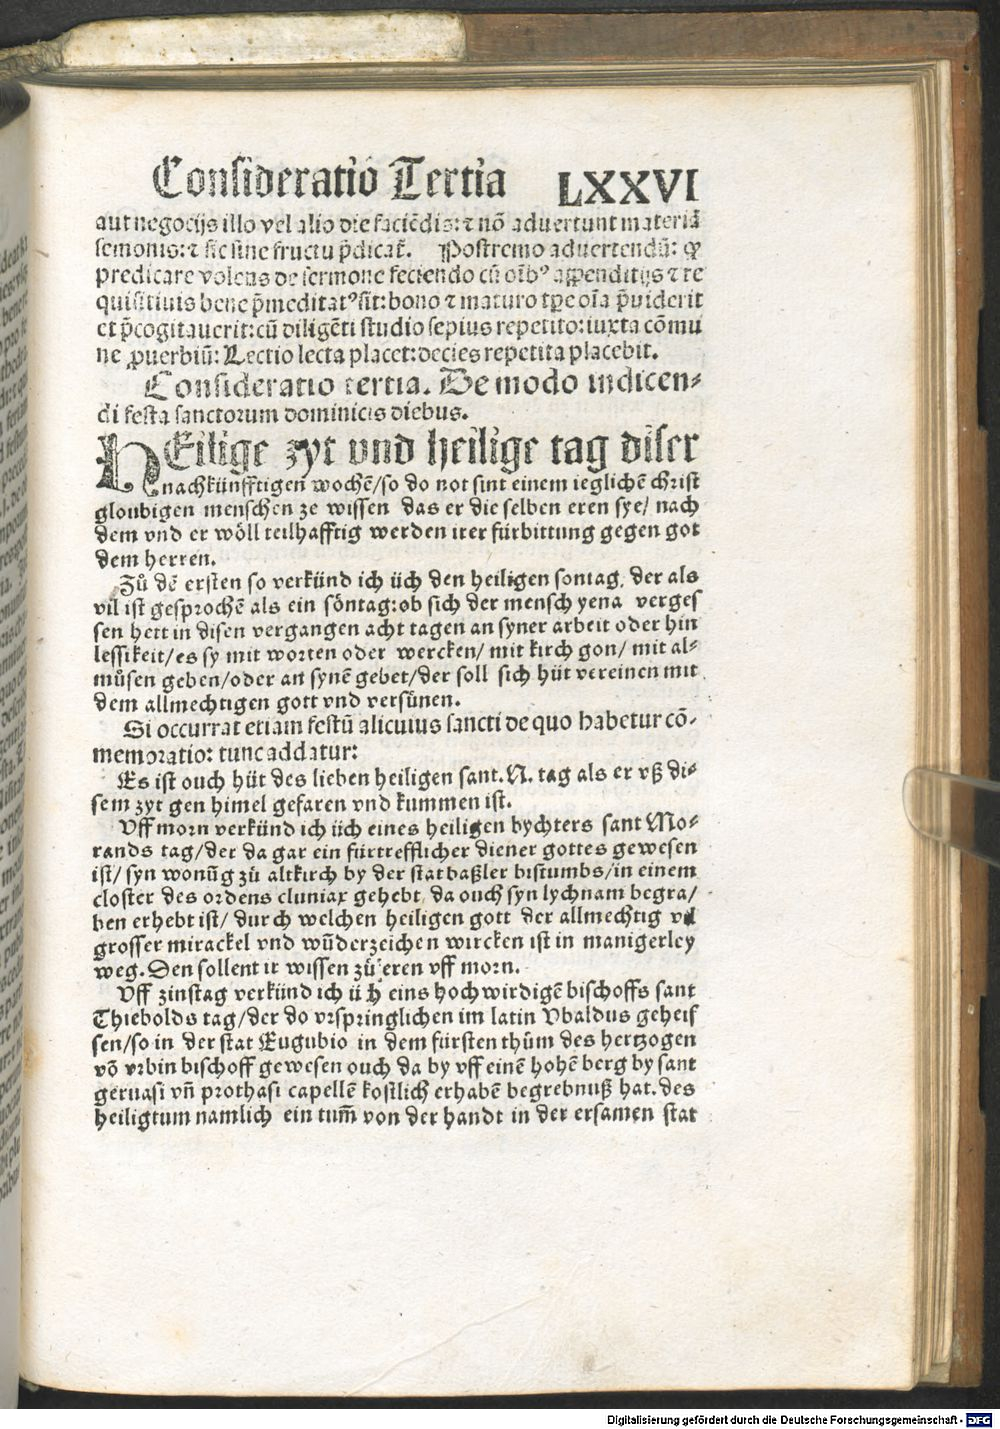 Consideratio Tertia LXXVI
aut negocijs illo vel alio die faciēdis: ⁊ nō aduertunt materiā
semonis: ⁊ sic sine fructu p̄dicāt. Postremo aduertendū: ꝙ
predicare volens de sermone feciendo cū oībꝰ appenditijs ⁊ re
quisitiuis bene p̄meditatꝰ sit: bono ⁊ maturo tp̄e oīa p̄uiderit
et p̄cogitauerit: cū diligēti studio sepius repetito: iuxta cōmu
ne ꝓuerbiū: Lectio lecta placet: decies repetita placebit.
Consideratio tertia. De modo indicen⸗
di festa sanctorum dominicis diebus.
HEilige zyt vnd heilige tag diser
nachkünfftigen wochē/ so do not sint einem ieglichē christ
gloubigen menschen ze wissen das er die selben eren sye/ nach
dem vnd er wöll teilhafftig werden irer fürbittung gegen got
dem herren.
Zů dē ersten so verkünd ich üch den heiligen sontag, der als
vil ist gesprochē als ein söntag: ob sich der mensch yena verges
sen hett in disen vergangen acht tagen an syner arbeit oder hin
lessikeit/ es sy mit worten oder wercken/ mit kirch gon/ mit al⸗
můsen geben/ oder an synē gebet/ der soll sich hüt vereinen mit
dem allmechtigen gott vnd versünen.
Si occurrat etiam festū alicuius sancti de quo habetur cō⸗
memoratio: tunc addatur:
Es ist ouch hüt des lieben heiligen sant. N. tag als er vß di⸗
sem zyt gen himel gefaren vnd kummen ist.
Vff morn verkünd ich üch eines heiligen bychters sant Mo⸗
rands tag/ der da gar ein fürtrefflicher diener gottes gewesen
ist/ syn wonūg zů altkirch by der stat baßler bistumbs/ in einem
closter des ordens cluniax gehebt, da ouch syn lychnam begra/
ben erhebt ist/ durch welchen heiligen gott der allmechtig vil
grosser mirackel vnd wūderzeichen wircken ist in manigerley
weg. Den sollent ir wissen zů eren vff morn.
Vff zinstag verkünd ich ü h eins hochwirdigē bischoffs sant
Thiebolds tag/ der do vrspringlichen im latin Vbaldus geheis
sen/ so in der stat Eugubio in dem fürsten thům des hertzogen
vō vrbin bischoff gewesen ouch da by vff einē hohē berg by sant
geruasi vn̄ prothasi capellē kostlich erhabē begrebnuß hat. des
heiligtum namlich ein tum̄ von der handt in der ersamen stat
Digitalisierung gefördert durch die Deutsche Forschungsgemeinschaft - DFG